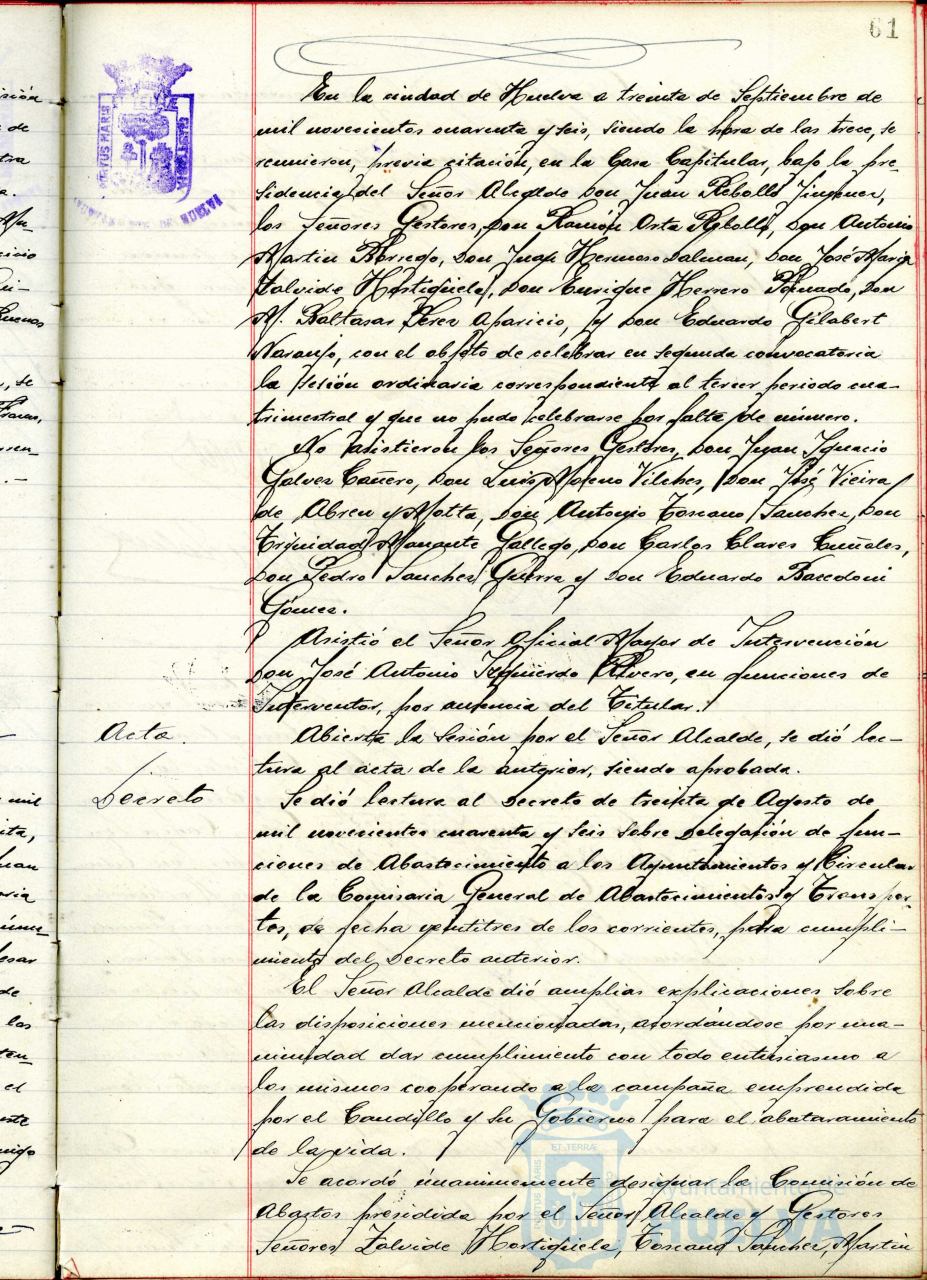 61
En la ciudad de Huelva a treinta de Septiembre de
mil novecientos cuarenta y seis, siendo la hora de las trece, se
reunieron, previa citación, en la Casa Capitular, bajo la pre-
sidencia del Señor Alcalde Don Juan Rebollo Jimenez,
los Señores Gestores, Don Ramón Orta Rebollo, Don Antonio
Martin Borrego, Don Juan Hermoso Dalman, Don José Maria
Zalvide Hortigüela, Don Enrique Herrero Peinado, Don
M. Baltasar Perez Aparicio, y Don Eduardo Gilabert
Naranjo, con el objeto de celebrar en segunda convocatoria
la sesión ordinaria correspondiente al tercer periodo cua-
trimestral y que no pudo celebrarse por falta de número.
No asistieron los Señores Gestores, Don Juan Ignacio
Galvez Cañero, Don Luis Moreno Vilches, Don José Vieira
de Abreu y Motta, Don Antonio Toscano Sanchez, Don
Trinidad Manante Gallego, Don Carlos Clares Cuñales,
Don Pedro Sanchez Guerra y Don Eduardo Bacedoni
Gómez.
Asistió el Señor Oficial Mayor de Intervención
Don José Antonio Izquierdo Rivero, en funciones de
Interventor, por ausencia del Titular.
Acta.
Abierta la Sesión por el Señor Alcalde, se dió lec-
tura al acta de la anterior, siendo aprobada.
Decreto
Se dió lectura al Decreto de treinta de Agosto de
mil novecientos cuarenta y seis sobre Delegación de fun-
ciones de Abastecimiento a los Ayuntamientos y Circular
de la Comisaria General de Abastecimientos y Transpor-
tes, de fecha ventitres de los corrientes, para cumpli-
miento del Decreto anterior.
El Señor Alcalde dió amplias explicaciones sobre
las disposiciones mencionadas, acordándose por una-
nimidad dar cumplimiento con todo entusiasmo a
los mismos cooperando a la campaña emprendida
por el Caudillo y su Gobierno para el abataramiento
de la vida.
Se acordó únanimemente designar la Comisión de
Abastos presidida por el Señor Alcalde y Gestores
Señores Zalvide Hortiguela, Toscano Sanchez, Martin
Ayuntamiento de
HUELVA